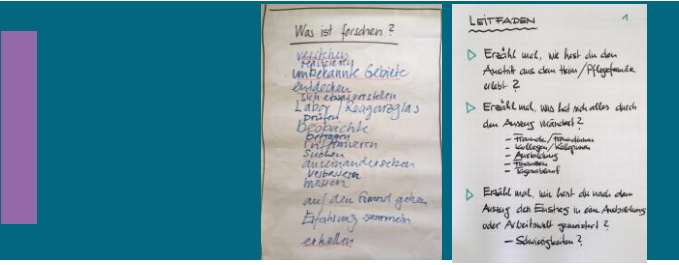 Was ist forschen?
verstehen
realisieren
unbekannte Gebiete
entdecken
sich etwas vorstellen
Labor / Reagenzglas
prüfen
Beobachte
befragen
informieren
suchen
auseinandersetzen
verbessern
messen
auf den Grund gehen
Erfahrung sammeln
erhellen
LEITFADEN
1
Erzähl mal, wie hast du den
Austritt aus dem Heim/Pflegefamilie
erlebt?
Erzähl mal, was hat sich alles durch
den Auszug verändert?
- Freunde/Freundinnen
- Kollegen/Kolleginnen
- Ausbildung
- Finanzen
- Tagesablauf
Erzähl mal, wie hast du nach dem
Auszug den Einstieg in eine Ausbildung
oder Arbeitswelt gemeistert?
- Schwierigkeiten?